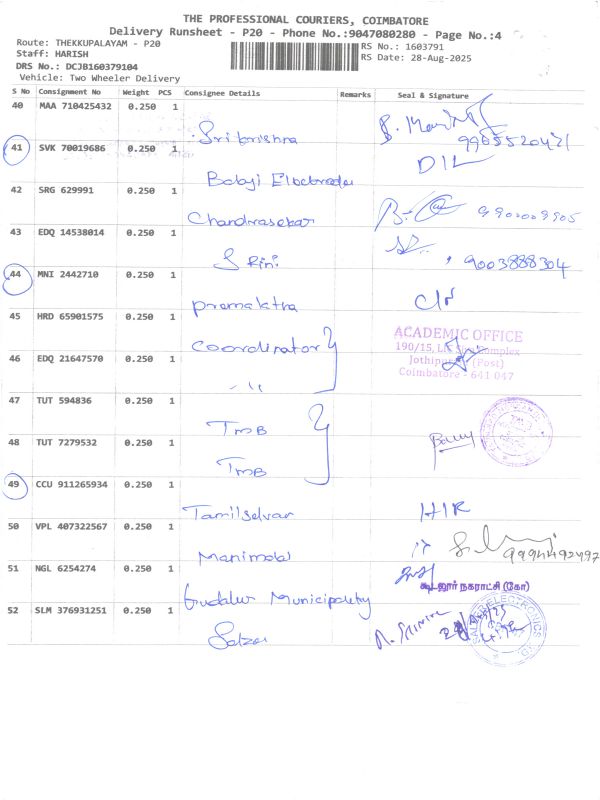 THE PROFESSIONAL COURIERS, COIMBATORE
Delivery Runsheet - P20 - Phone No.:9047080280 - Page No.:4
Route: THEKKUPALAYAM - P20
RS No.: 1603791
Staff: HARISH
RS Date: 28-Aug-2025
DRS No.: DCJB160379104
Vehicle: Two Wheeler Delivery
S No Consignment No Weight PCS Consignee Details Remarks Seal & Signature
40 MAA 710425432 0.250 1
Srikrishna
41 SVK 70019686 0.250 1
Balaji DIL
42 SRG 629991 0.250 1
Chandrasekar
43 EDQ 14538014 0.250 1
Srini 9003888304
44 MNI 2442710 0.250 1
45 HRD 65901575 0.250 1
Coordinator
ACADEMIC OFFICE
190/15,
(Post)
Coimbatore - 641 047
46 EDQ 21647570 0.250 1
47 TUT 594836 0.250 1
TMB
48 TUT 7279532 0.250 1
TMB
49 CCU 911265934 0.250 1
Tamilselvan
50 VPL 407322567 0.250 1
51 NGL 6254274 0.250 1
கூடலூர் நகராட்சி (கோ)
Gudalur Municipality
52 SLM 376931251 0.250 1